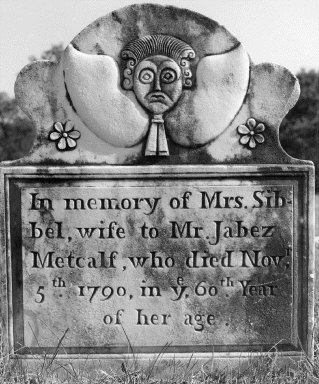 In memory of Mrs. Sib-
bel, wife to Mr. Jabez
Metcalf, who died Nov.r
5th 1790, in ye 60th Year
of her age.